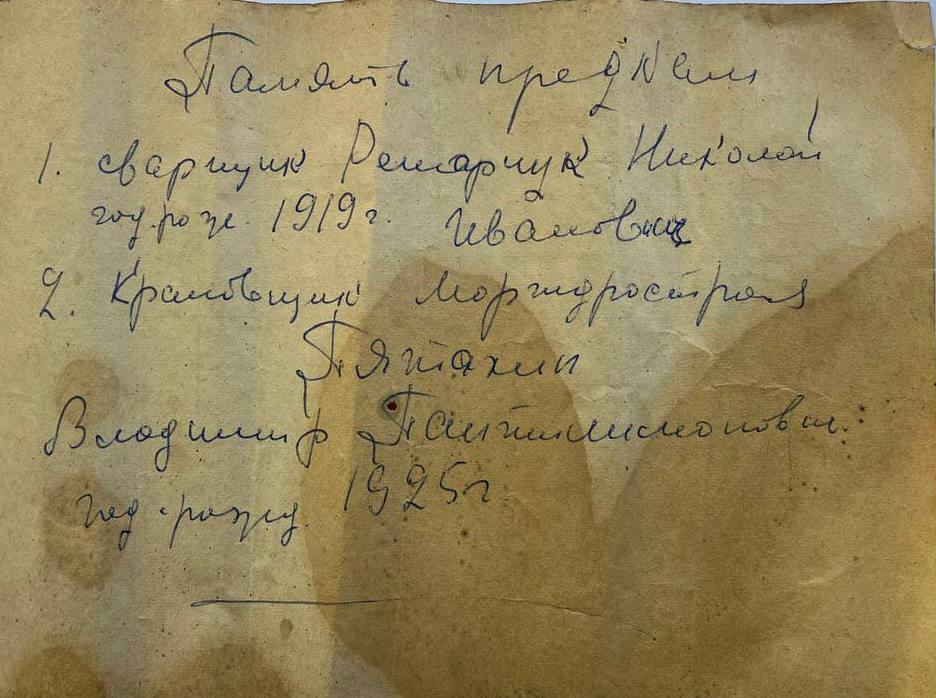 Память предкам
1. сварщик Николай
год. рож. 1919 г. Иванович
2. Крановщик Моргидростроя
Пятахин
Владимир Пантилимонович.
год. рожд. 1925 г